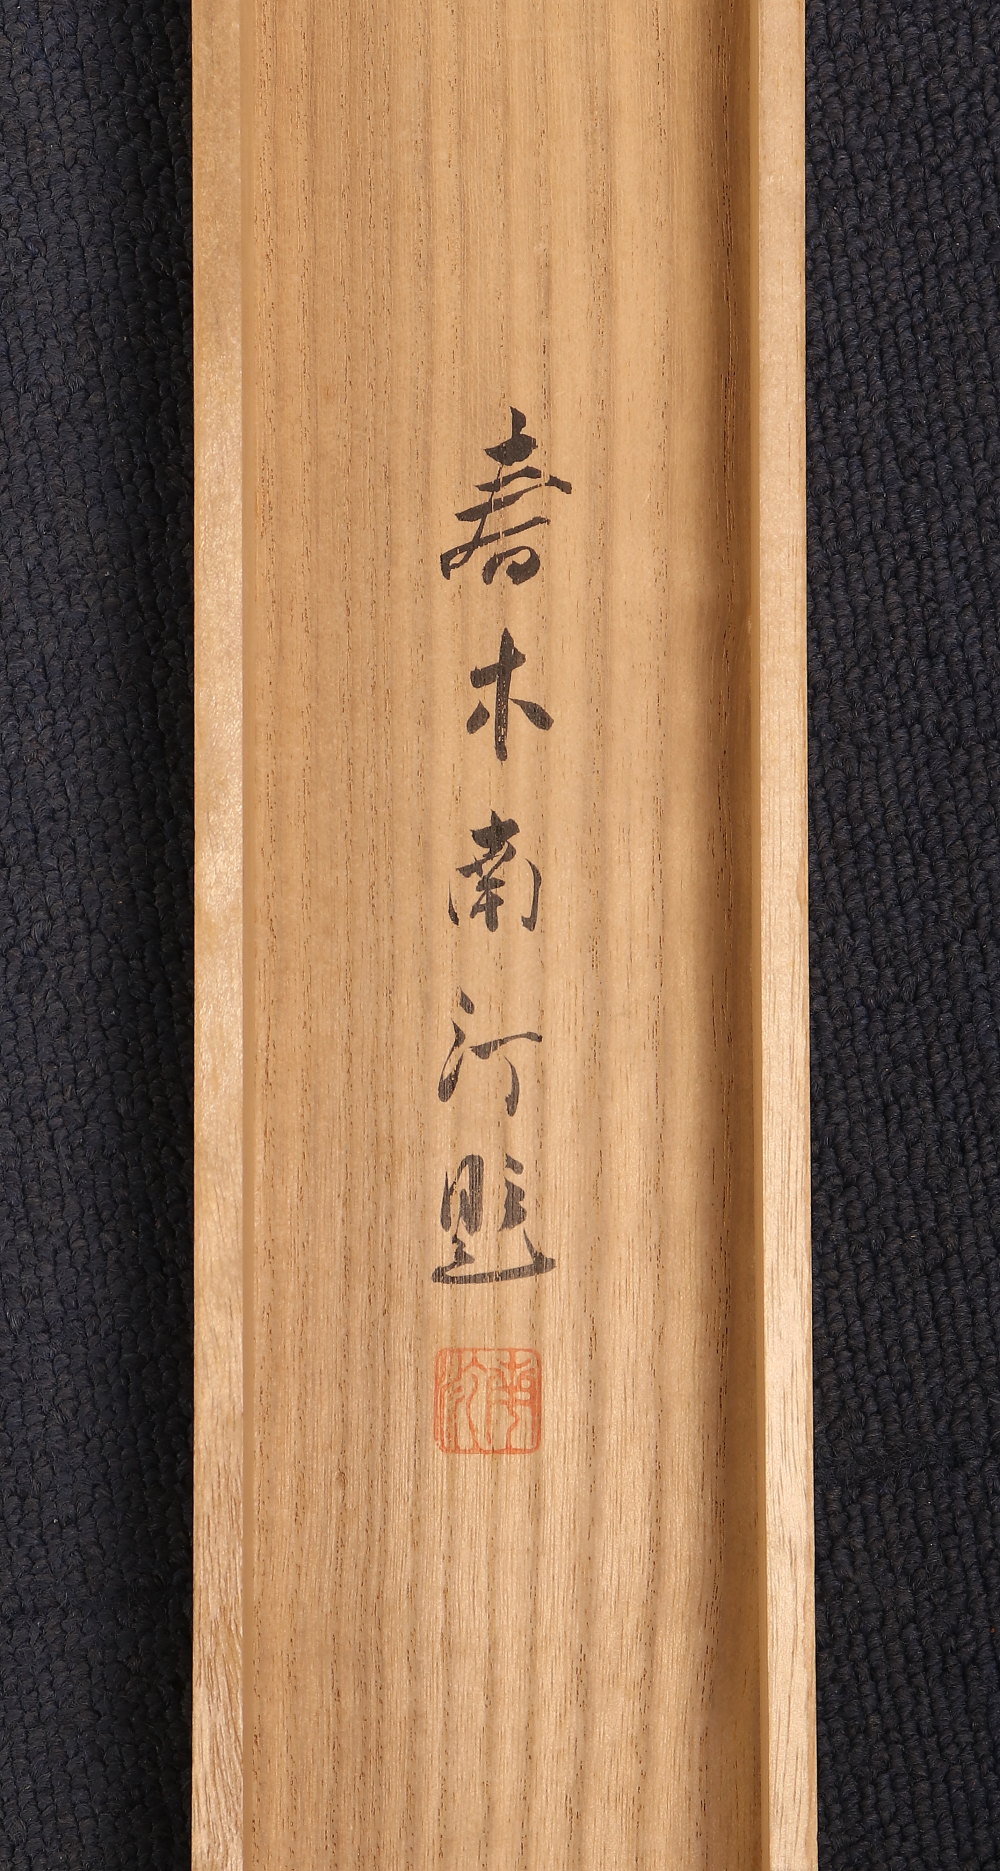 春木南汀題